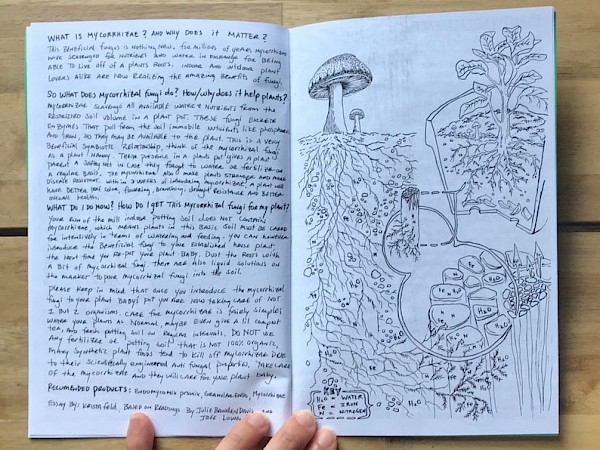 WHAT IS MYCORRHIZAE? AND WHY DOES it MATTER?
This Beneficial fungus is nothing new. For millions of years mycorrhizae
have scavenged for nutrients and water in exchange for being
able to live off of a plants roots. Indoor and outdoor plant
lovers alike are now realizing the amazing benefits of fungi.
SO WHAT DOES Mycorrhizal fungi do? How/why does it help plants?
Mycorrhizae scavenge all available water & nutrients from the
restricted soil volume in a plant pot. These fungi excrete
enzymes that pull from the soil immobile nutrients like phosphorus
and iron, so they may be available to the plant. This is a very
Beneficial symbiotic relationship, think of the mycorrhizal fungi
as a plant nanny. Their presence in a plants pot gives a plant
parent a safety net in case they forget to water or fertilize on
a regular basis. The mycorrhizae also make plants stronger and more
disease resistant. Within 3 weeks of introducing mycorrhizae, a plant will
have better leaf color, flowering, branching, drought resistance and better
overall health.
WHAT DO I DO NOW? HOW DO I GET This Mycorrhizal fungi for my plant?
Your run of the mill indoor potting soil does not contain
mycorrhizae, which means plants in this basic soil must be cared
for intensively in terms of watering and feeding. You can however
introduce the beneficial fungi to your established house plant
the next time you re-pot your plant baby. Dust the roots with
a bit of mycorrhizal fungi. There are also liquid solutions on
the market to pour mycorrhizal fungi into the soil.
Please keep in mind that once you introduce the mycorrhizal
fungi to your plant babys pot you are now taking care of not
1 but 2 organisms. Care for mycorrhizae is fairly simple;
water your plants as normal, maybe even give a lil compost
tea, and fresh potting soil on regular intervals. DO NOT use
any fertilizer or potting soil that is NOT 100% organic,
Many synthetic plant foods tend to kill off mycorrhizae due
to their scientifically engineered anti fungal properties. Take care
of the mycorrhizae and they will care for your plant baby.
Recomended products:
Essay By: Krista Feld, Based on Readings By Julie Bawden Davis and
Jeff Lowenfels
KEY
H₂O = WATER
Fe = IRON
N = NITROGEN